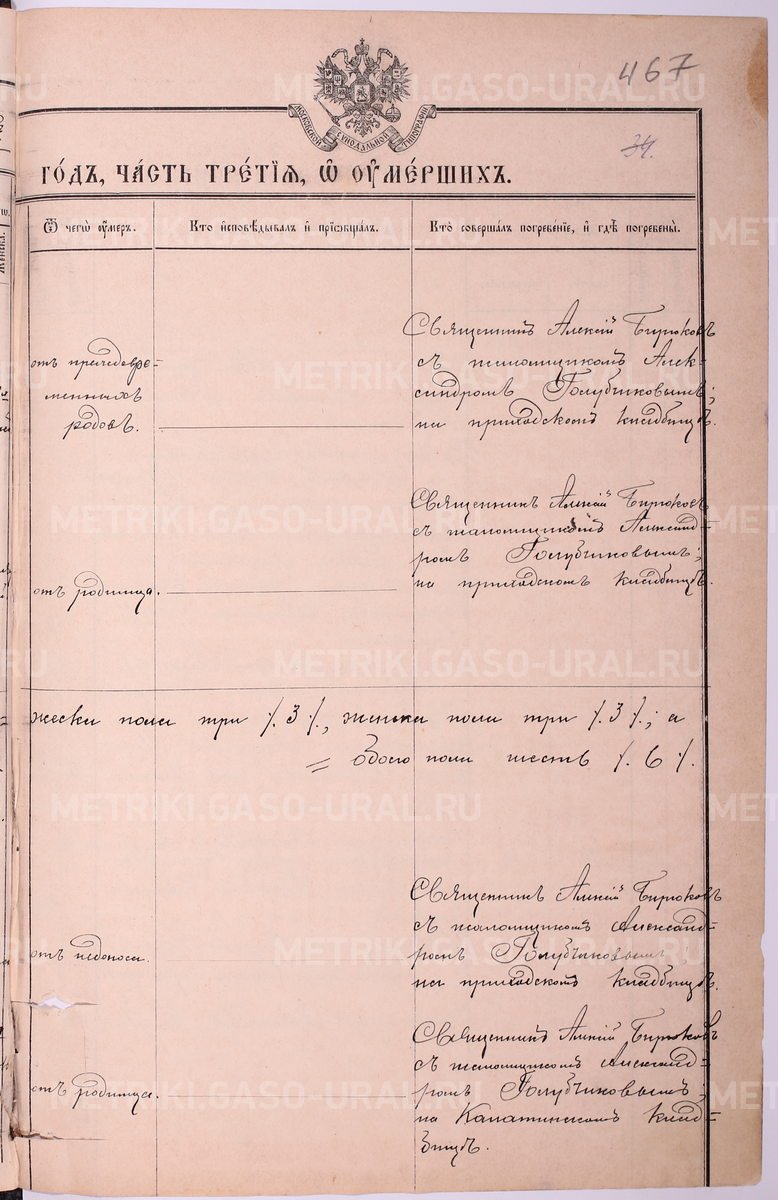 467
МОСКОВСКОЙ СѴНОДАЛЬНОЙ ТИПОГРАФІИ
34.
го́дъ, ча́сть тре́тїѧ, ѡ҆ ᲂу҆ме́ршихъ.
Ѿ чегѡ̀ ᲂу҆́меръ.
Кто̀ и҆сповѣ́дывалъ и҆ прїѡбща́лъ.
Кто̀ соверша́лъ погребе́нїе, и҆ гдѣ̀ погребены̀.
отъ преждевре-
менныхъ
родовъ.
Священникъ Алексій Бирюковъ
съ псаломщикомъ Алек-
сандромъ Голубчиковымъ;
на приходскомъ кладбищѣ.
отъ родимца.
Священникъ Алексій Бирюковъ
съ псаломщикомъ Александ-
ромъ Голубчиковымъ;
на приходскомъ кладбищѣ.
жеска пола три /.3/., женска пола три /.3/.; а
= обоего пола шесть /.6/.
отъ недоноса.
Священникъ Алексій Бирюковъ
съ псаломщикомъ Александ-
ромъ Голубчиковымъ;
на приходскомъ кладбищѣ.
отъ родимца.
Священникъ Алексій Бирюковъ
съ псаломщикомъ Александ-
ромъ Голубчиковымъ;
на Калатинскомъ клад-
бищѣ.
METRIKI.GASO-URAL.RU